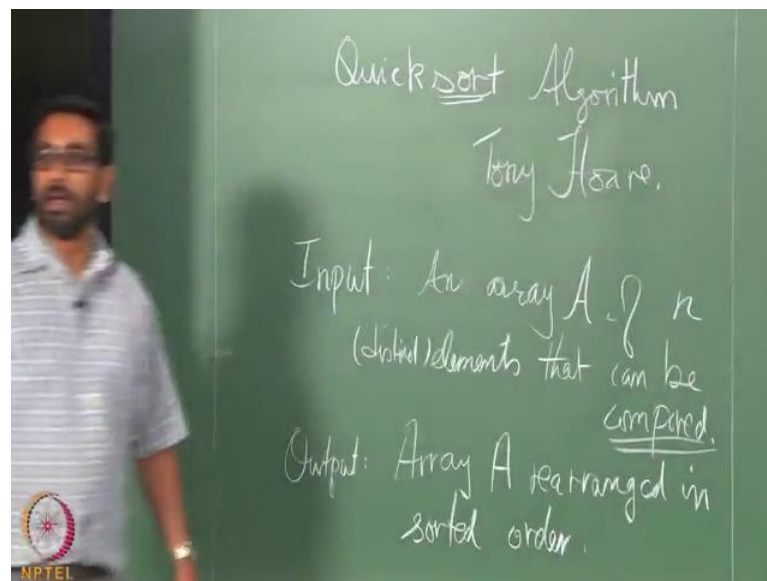 Quicksort Algorithm
Tony Hoare.
Input: An array A of n
(distinct) elements that can be
compared.
Output: Array A rearranged in
sorted order.
NPTEL